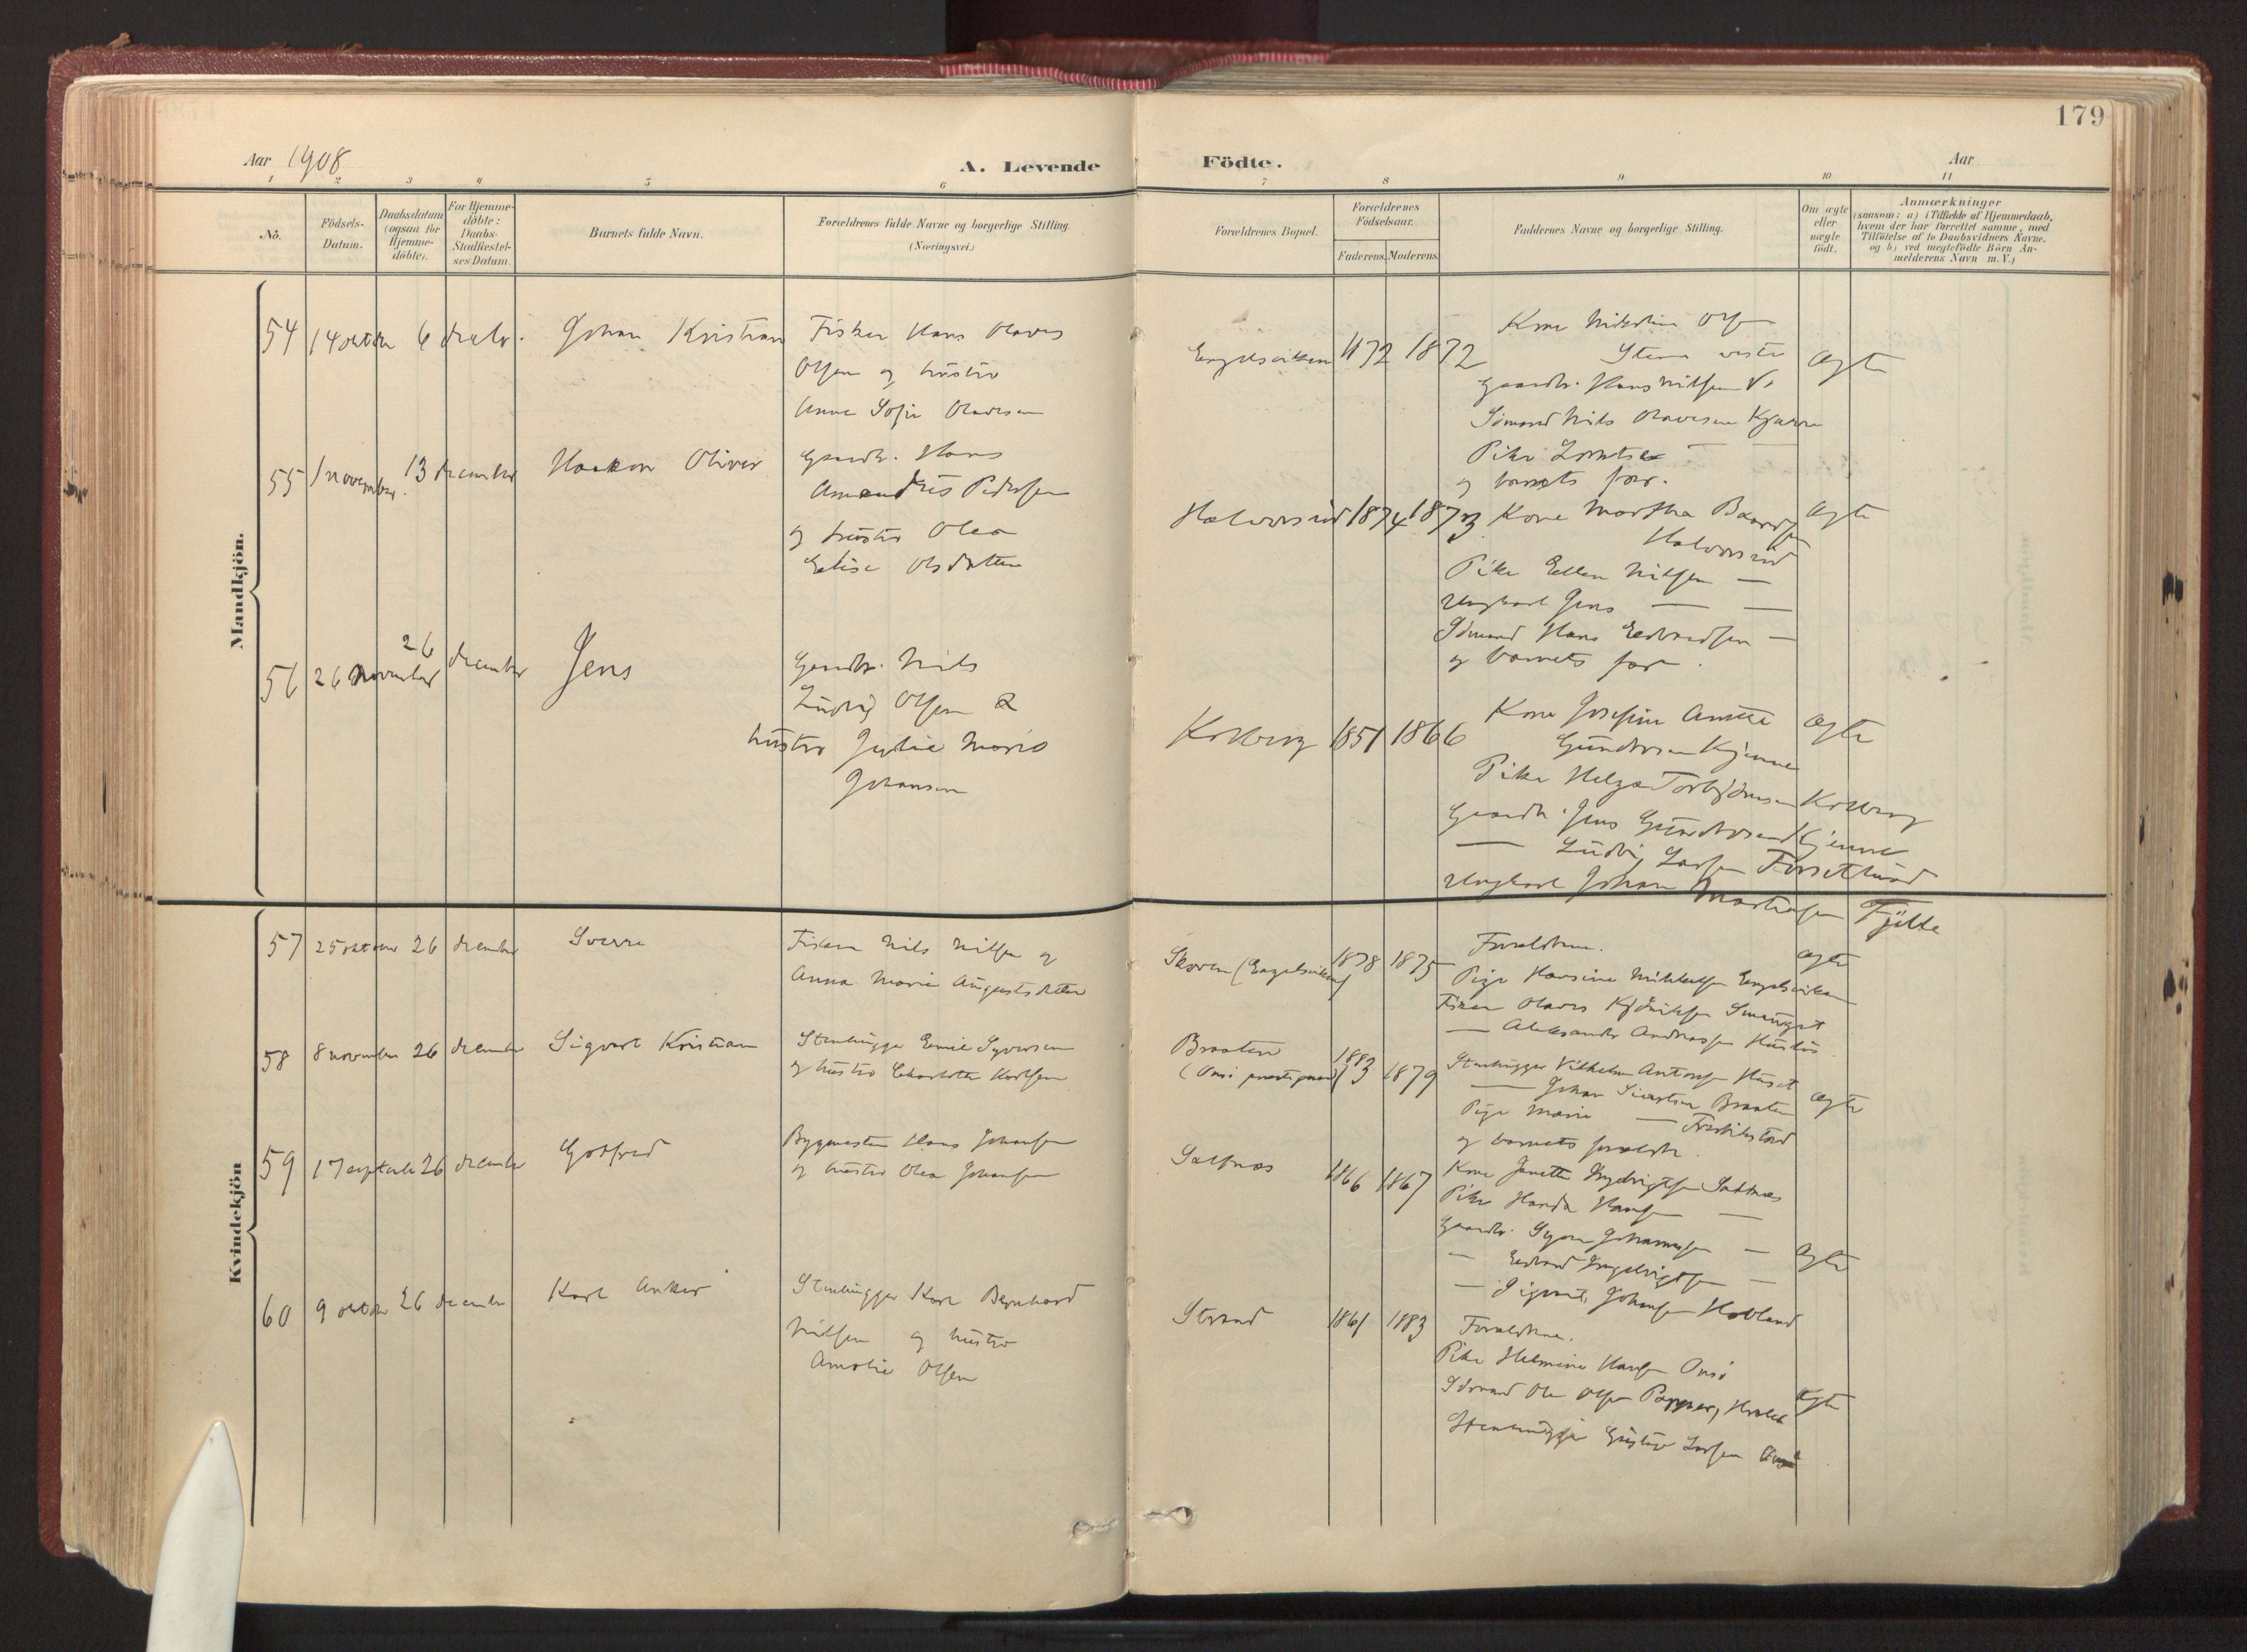 179
Aar 1908
A. Levende
Födte.
Aar
1 2 3 4 5 6 7 8 9 10 11
No.
Födsels-
Datum.
Daabsdatum
(ogsaa for
Hjemme-
döbte).
For Hjemme-
döbte:
Daabs-
Stadfæstel-
ses Datum.
Barnets fulde Navn.
Forældrenes fulde Navne og borgerlige Stilling.
(Næringsvei.)
Forældrenes Bopæl.
Forældrenes
Födselsaar.
Faderens. Moderens.
Faddernes Navne og borgerlige Stilling.
Om ægte
eller
uægte
födt.
Anmærkninger
(saasom: a) i Tilfælde af Hjemmedaab,
hvem der har forrettet samme, med
Tilföielse af to Daabsvidners Navne.
og b) ved uægtefödte Börn An-
melderens Navn m. V.)
Mandkjön.
54 14 oktober 6 decbr. Johan Kristian Fisker Hans Olaves
Olsen og hustru
Anne Sofie Olavesen
Engelsviken 1872 1872
Kone
Gaardbr. Hans Nilsen
Sömand Nils Olavesen Kjærre
Pike
og barnets far.
Ægte
55 1 november 13 december Haakon Oliver Gaardbr. Hans
Amandus Pedersen
og hustru Olea
Elise Olsdatter
Halvorsrød 1874 1873 Kone Martha Baardsen
Halvorsrød
Pike Ellen Nilsen —
Ungkarl Jens — —
Sömand Hans Edvardsen —
og barnets far.
Ægte
56 26 november 26 december Jens Gaardbr. Nils
Ludvig Olsen &
hustru Julie Marie
Johansen
Kolberg 1851 1866
Kone Josefine Anette
Gundersen Kjenne
Pike Helga Torbjörnsen Kolberg
Gaardbr. Jens Gundersen Kjenne
— Ludvig Larsen Torsetlund
Ungkarl Johan Mathisen Tjelle
Ægte
Kvindekjön
57 25 oktober 26 december Sverre Fisker Nils Nilsen og
Anna Marie Augustsdatter
Skoven (Engelsviken) 1878 1875
Forældrene.
Pige Hansine Mikkelsen Engelsviken
Fisker Olaves
— Aleksander Andreassen
Ægte
58 8 november 26 december Sigvart Kristian Stenhugger Emil Syversen
og hustru Charlotte Karlsen
Braaten
(Onsö prestegaard) 1883 1879
Stenhugger Vilhelm Antonsen Huset
— Johan Sivertsen Braaten
Pige Marie — Fredrikstad
og barnets forældre.
Ægte
59 17 september 26 december Gotfred Bygmester Hans Johansen
og hustru Olea Johansen
Saltnæs 1866 1867
Kone Janette Ingebrigtsen Saltnæs
Pike Hansen —
Gaardbr. Syver Johannesen —
— Edvard Ingebrigtsen —
— Sigvart Johansen Hobland
Ægte
60 9 oktober 26 december Karl Anker Stenhugger Karl Bernhard
Nilsen og hustru
Amalie Olsen
Strand 1861 1883
Forældrene.
Pike Helmine Hansen Onsö
Sömand Ole Olsen
Stenhugger Gustav Larsen Onsö
Ægte